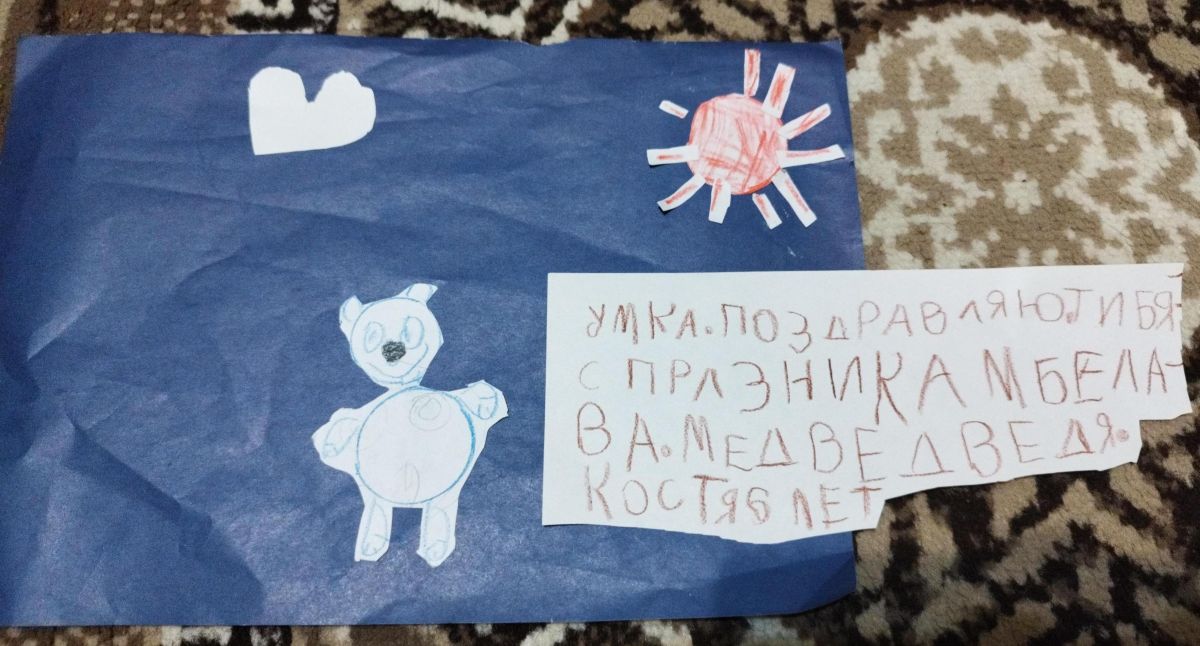 УМКА.ПОЗДРАВЛЯЮ.ТИБЯ-
С ПРАЗНИКАМ БЕЛА-
ВА.МЕДВЕДВЕДЯ.
КОСТЯ 6 ЛЕТ